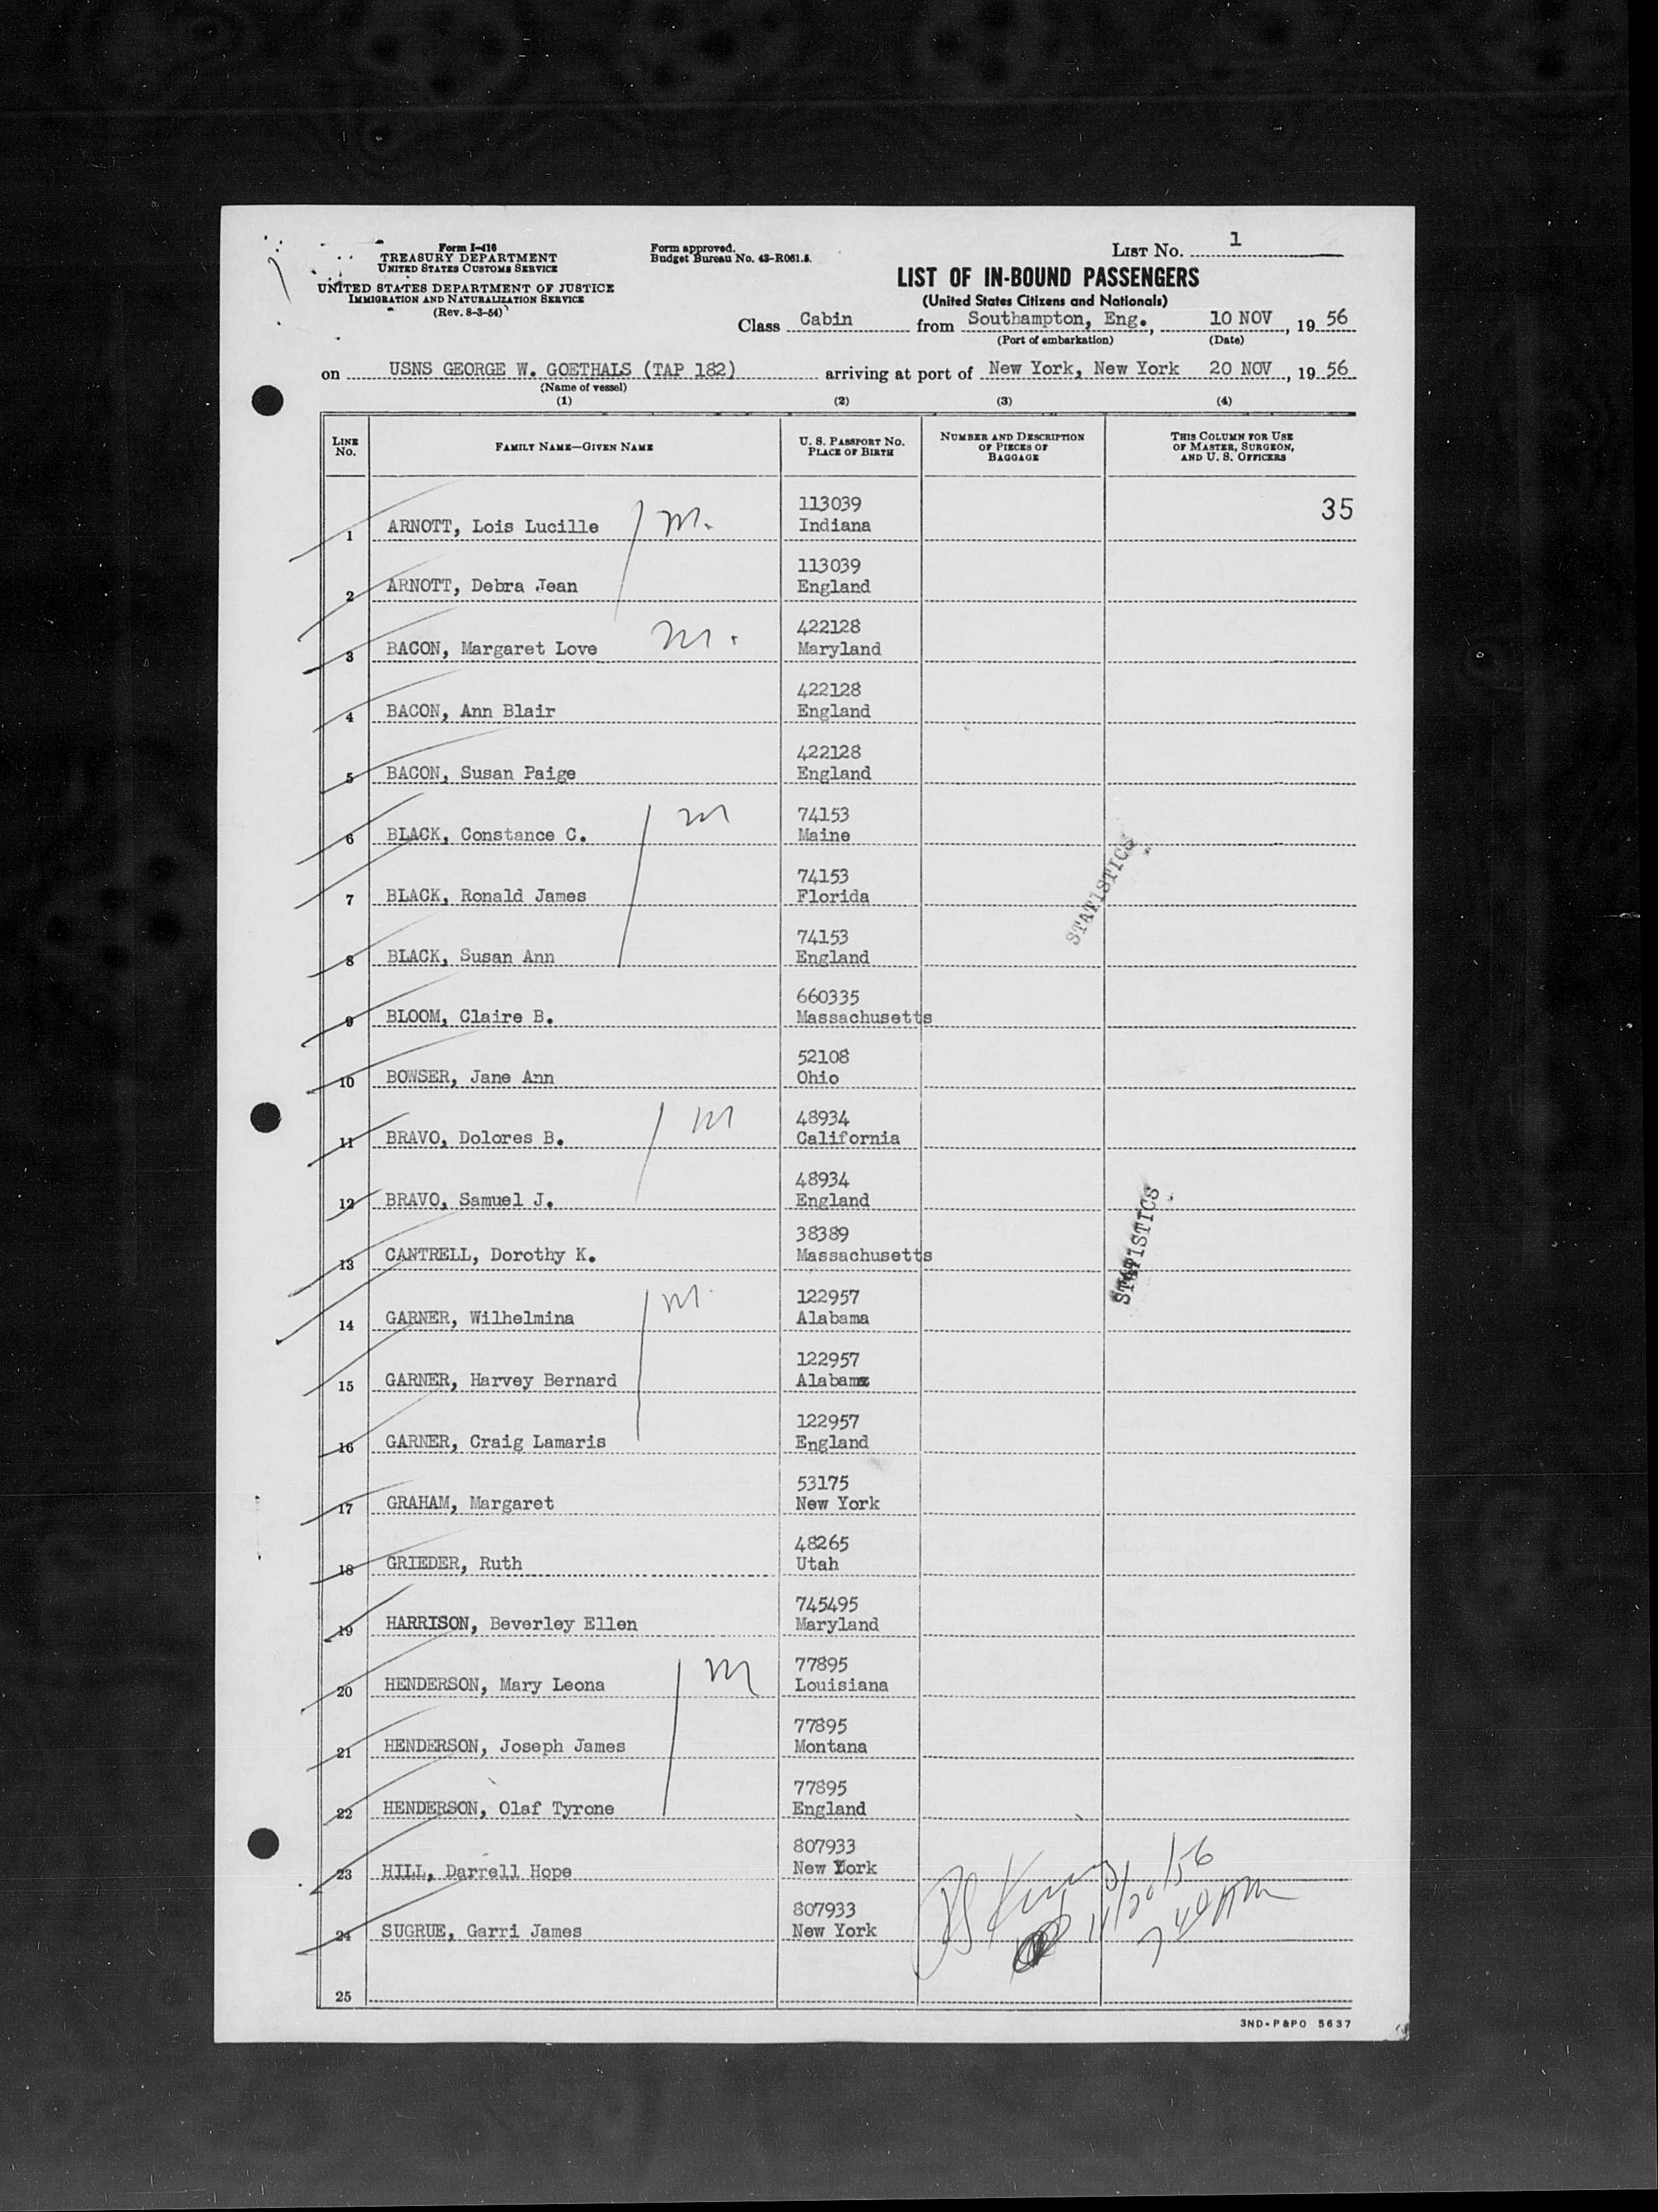 Form I-416
TREASURY DEPARTMENT
UNITED STATES CUSTOMS SERVICE
UNITED STATES DEPARTMENT OF JUSTICE
IMMIGRATION AND NATURALIZATION SERVICE
(Rev. 8-3-54)
Form approved.
Budget Bureau No. 43-R061.5.
LIST NO. 1
LIST OF IN-BOUND PASSENGERS
(United States Citizens and Nationals)
Class Cabin from Southampton, Eng., 10 NOV, 19 56
(Port of embarkation) (Date)
on USNS GEORGE W. GOETHALS (TAP 182) arriving at port of New York, New York 20 NOV, 19 56
(Name of vessel)
(1) (2) (3) (4)
LINE NO. FAMILY NAME—GIVEN NAME U. S. PASSPORT NO. PLACE OF BIRTH NUMBER AND DESCRIPTION OF PIECES OF BAGGAGE THIS COLUMN FOR USE OF MASTER, SURGEON, AND U. S. OFFICERS
113039 35
1 ARNOTT, Lois Lucille m. Indiana
113039
2 ARNOTT, Debra Jean England
422128
3 BACON, Margaret Love m. Maryland
422128
4 BACON, Ann Blair England
422128
5 BACON, Susan Paige England
74153
6 BLACK, Constance C. m Maine
74153
7 BLACK, Ronald James Florida
STATISTICS
74153
8 BLACK, Susan Ann England
660335
9 BLOOM, Claire B. Massachusetts
52108
10 BOWSER, Jane Ann Ohio
48934
11 BRAVO, Dolores B. m California
48934
12 BRAVO, Samuel J. England
38389
13 CANTRELL, Dorothy K. Massachusetts
STATISTICS
122957
14 GARNER, Wilhelmina m. Alabama
122957
15 GARNER, Harvey Bernard Alabama
122957
16 GARNER, Craig Lamaris England
53175
17 GRAHAM, Margaret New York
48265
18 GRIEDER, Ruth Utah
745495
19 HARRISON, Beverley Ellen Maryland
77895
20 HENDERSON, Mary Leona m Louisiana
77895
21 HENDERSON, Joseph James Montana
77895
22 HENDERSON, Olaf Tyrone England
807933
23 HILL, Darrell Hope New York
807933
24 SUGRUE, Garri James New York
11/20/56
25
3ND-P&PO 5637